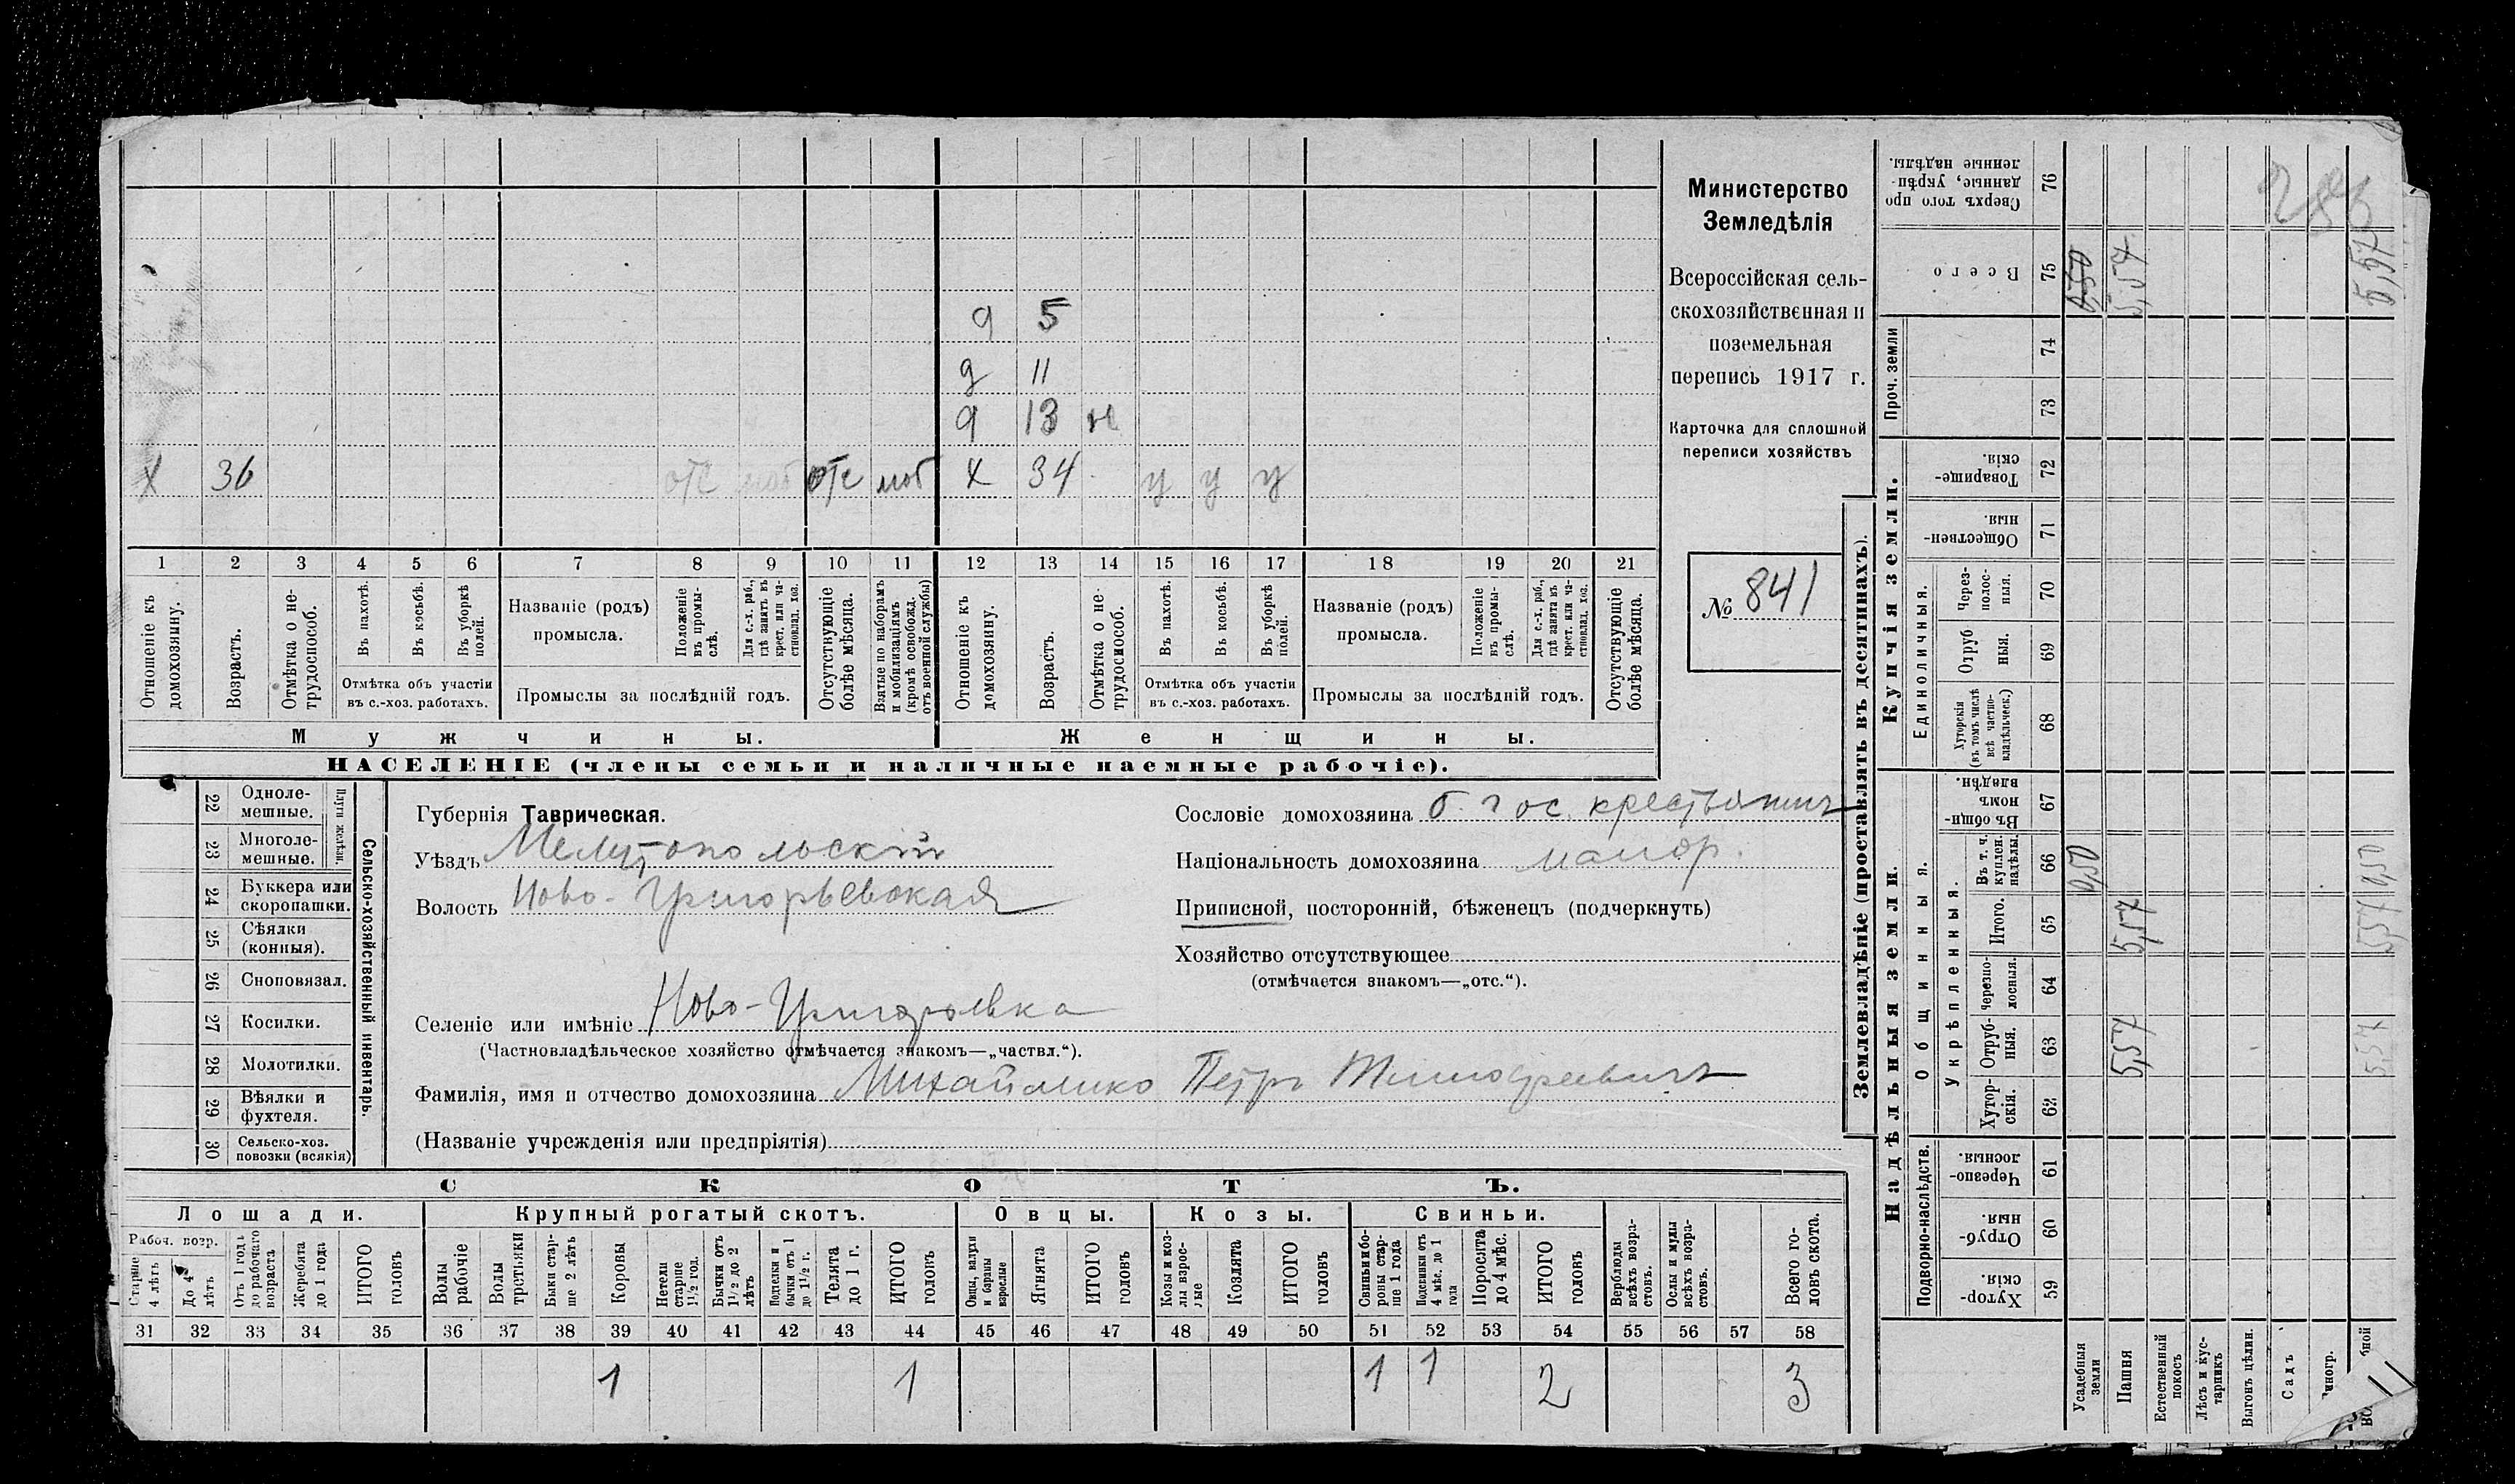 д 5
д 11
д 13 н
х 36 отс моб отс моб х 34 у у у
1 2 3 4 5 6 7 8 9 10 11 12 13 14 15 16 17 18 19 20 21
Отношеніе къ домохозяину.
Возрастъ.
Отмѣтка о не-
трудоспособ.
Въ пахотѣ.
Въ косьбѣ.
Въ уборкѣ полей.
Отмѣтка объ участіи
въ с.-хоз. работахъ.
Названіе (родъ)
промысла.
Положеніе
въ промы-
слѣ.
Для с.-х. раб.,
гдѣ занятъ въ
крест. или ча-
стновлад. хоз.
Промыслы за послѣдній годъ.
Отсутствующіе
болѣе мѣсяца.
Взятые по наборамъ
и мобилизаціямъ
(кромѣ освобожд.
отъ военной службы)
Отношеніе къ
домохозяину.
Возрастъ.
Отмѣтка о не-
трудоспособ.
Въ пахотѣ.
Въ косьбѣ.
Въ уборкѣ
полей.
Отмѣтка объ участіи
въ с.-хоз. работахъ.
Названіе (родъ)
промысла.
Положеніе
въ промы-
слѣ.
Для с.-х. раб.,
гдѣ занята въ
крест. или ча-
стновлад. хоз.
Промыслы за послѣдній годъ.
Отсутствующіе
болѣе мѣсяца.
Мужчины.
Женщины.
НАСЕЛЕНІЕ (члены семьи и наличные наемные рабочіе).
Министерство
Земледѣлія
Всероссійская сель-
скохозяйственная и
поземельная
перепись 1917 г.
Карточка для сплошной
переписи хозяйствъ
№ 841
22 Одноле-
мешные.
23 Многоле-
мешные.
Плуги желѣзн.
24 Буккера или
скоропашки.
25 Сѣялки
(конныя).
26 Сноповязал.
27 Косилки.
28 Молотилки.
29 Вѣялки и
фухтеля.
30 Сельско-хоз.
повозки (всякія)
Сельско-хозяйственный инвентарь.
Губернія Таврическая.
Уѣздъ Мелитопольскій
Волость Ново-Григорьевская
Селеніе или имѣніе Ново-Григорьевка
(Частновладѣльческое хозяйство отмѣчается знакомъ—„частвл.“).
Фамилія, имя и отчество домохозяина Михайленко Петръ Тимофеевичъ
(Названіе учрежденія или предпріятія)
Сословіе домохозяина б. гос. крестьянинъ
Національность домохозяина малор.
Приписной, посторонній, бѣженецъ (подчеркнуть)
Хозяйство отсутствующее
(отмѣчается знакомъ—„отс.“).
СКОТЪ.
Лошади. Крупный рогатый скотъ. Овцы. Козы. Свиньи.
Рабоч. возр.
Старше
4 лѣтъ
До 4
лѣтъ
Отъ 1 года
до рабочаго
возраста
Жеребята
до 1 года
ИТОГО
головъ
Волы
рабочіе
Волы
третьяки
Быки стар-
ше 2 лѣтъ
Коровы
Нетели
старше
1½ год.
Бычки отъ
1½ до 2
лѣтъ
Подтелки и
бычки отъ 1
до 1½ г.
Телята
до 1 г.
ИТОГО
головъ
Овцы, валухи
и бараны
взрослые
Ягнята
ИТОГО
головъ
Козы и коз-
лы взрос-
лые
Козлята
ИТОГО
головъ
Свиньи и бо-
ровы стар-
ше 1 года
Подсвинки отъ
4 мѣс. до 1
года
Поросята
до 4 мѣс.
ИТОГО
головъ
Верблюды
всѣхъ возра-
стовъ.
Ослы и мулы
всѣхъ возра-
стовъ.
Всего го-
ловъ скота.
31 32 33 34 35 36 37 38 39 40 41 42 43 44 45 46 47 48 49 50 51 52 53 54 55 56 57 58
1 1 1 1 2 3
Землевладѣніе (проставлять въ десятинахъ).
Надѣльныя земли.
Купчія земли.
Проч. земли
Подворно-наслѣдств.
Общинныя.
Укрѣпленныя.
Единоличныя.
Хутор-
скія. 59
Отруб-
ныя. 60
Черезпо-
лосныя. 61
Хутор-
скія. 62
Отруб-
ныя. 63
Черезпо-
лосныя. 64
Итого. 65
Въ т. ч.
куплен.
надѣлы. 66
Въ общин-
номъ
владѣн. 67
Хуторскія
(въ томъ числѣ
всѣ частно-
владѣльческ.) 68
Отруб
ныя. 69
Через-
полос-
ныя. 70
Обществен-
ныя. 71
Товарище-
скія. 72
73
74
Всего 75
Сверхъ того про
данные, укрѣп-
ленные надѣлы. 76
Усадебныя
земли 0,50
Пашня 5,57 5,57 5,57
Естественный
покосъ
Лѣсъ и кус-
тарникъ
Выгонъ цѣлин.
Садъ
5,57 5,57 0,50 5,57